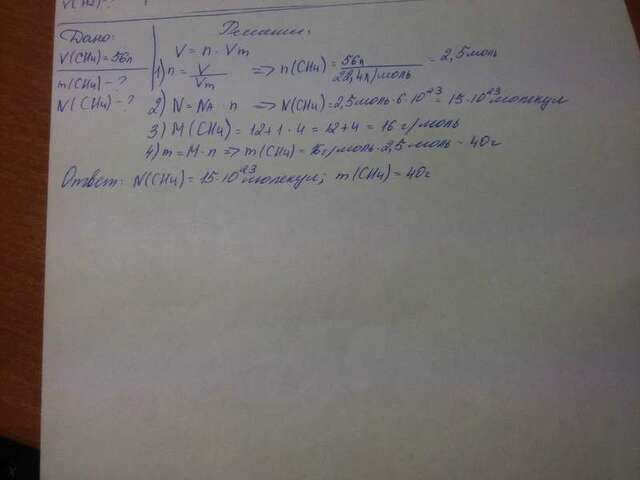 Дано:
V(CH4)=56л
m(CH4)-?
N(CH4)-?
Решение:
V = n · Vm
1) n = V/Vm => n(CH4) = 56л/22,4л/моль = 2,5моль
2) N = NA · n => N(CH4)=2,5моль·6·10²³= 15·10²³молекул
3) M(CH4) = 12+1·4 = 12+4 = 16 г/моль
4) m = M·n => m(CH4) = 16г/моль·2,5 моль = 40г
Ответ: N(CH4) = 15·10²³молекул; m(CH4) = 40г